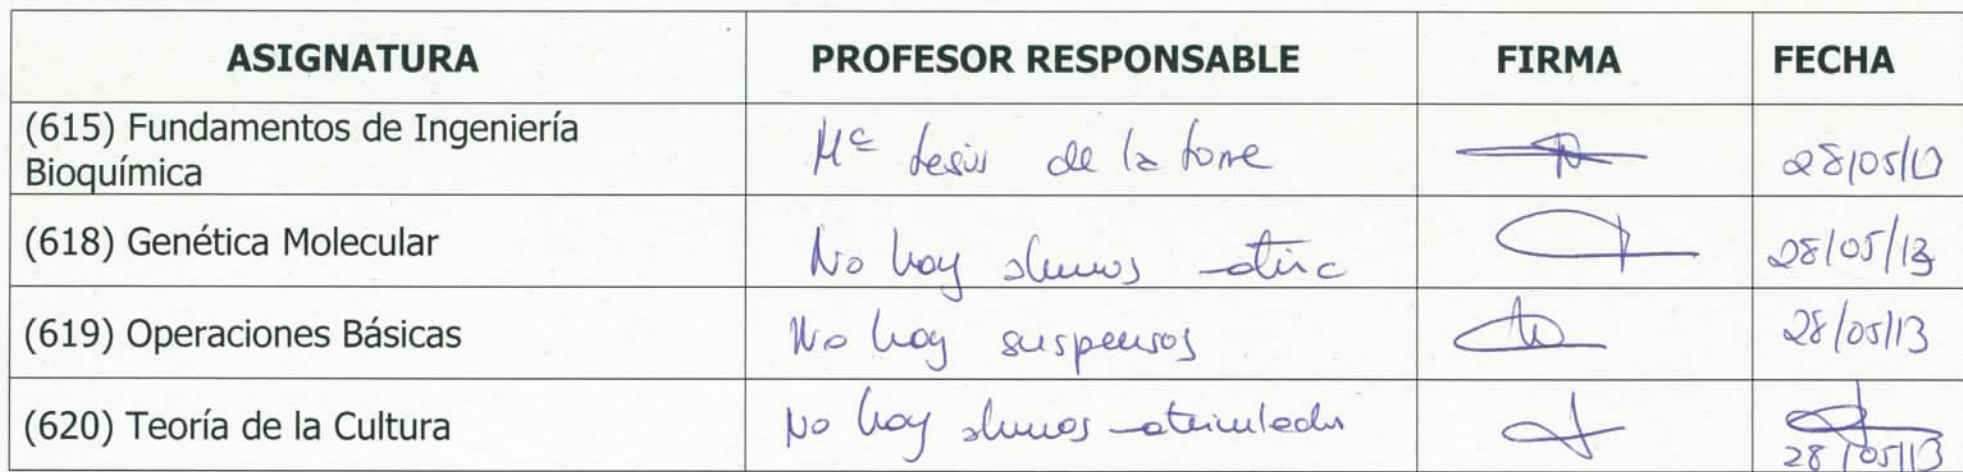 ASIGNATURA PROFESOR RESPONSABLE FIRMA FECHA
(615) Fundamentos de Ingeniería
Bioquímica
Mª Jesús de la Torre 28/05/13
(618) Genética Molecular No hay alumnos 28/05/13
(619) Operaciones Básicas No hay suspensos 28/05/13
(620) Teoría de la Cultura No hay alumnos matriculados 28/05/13